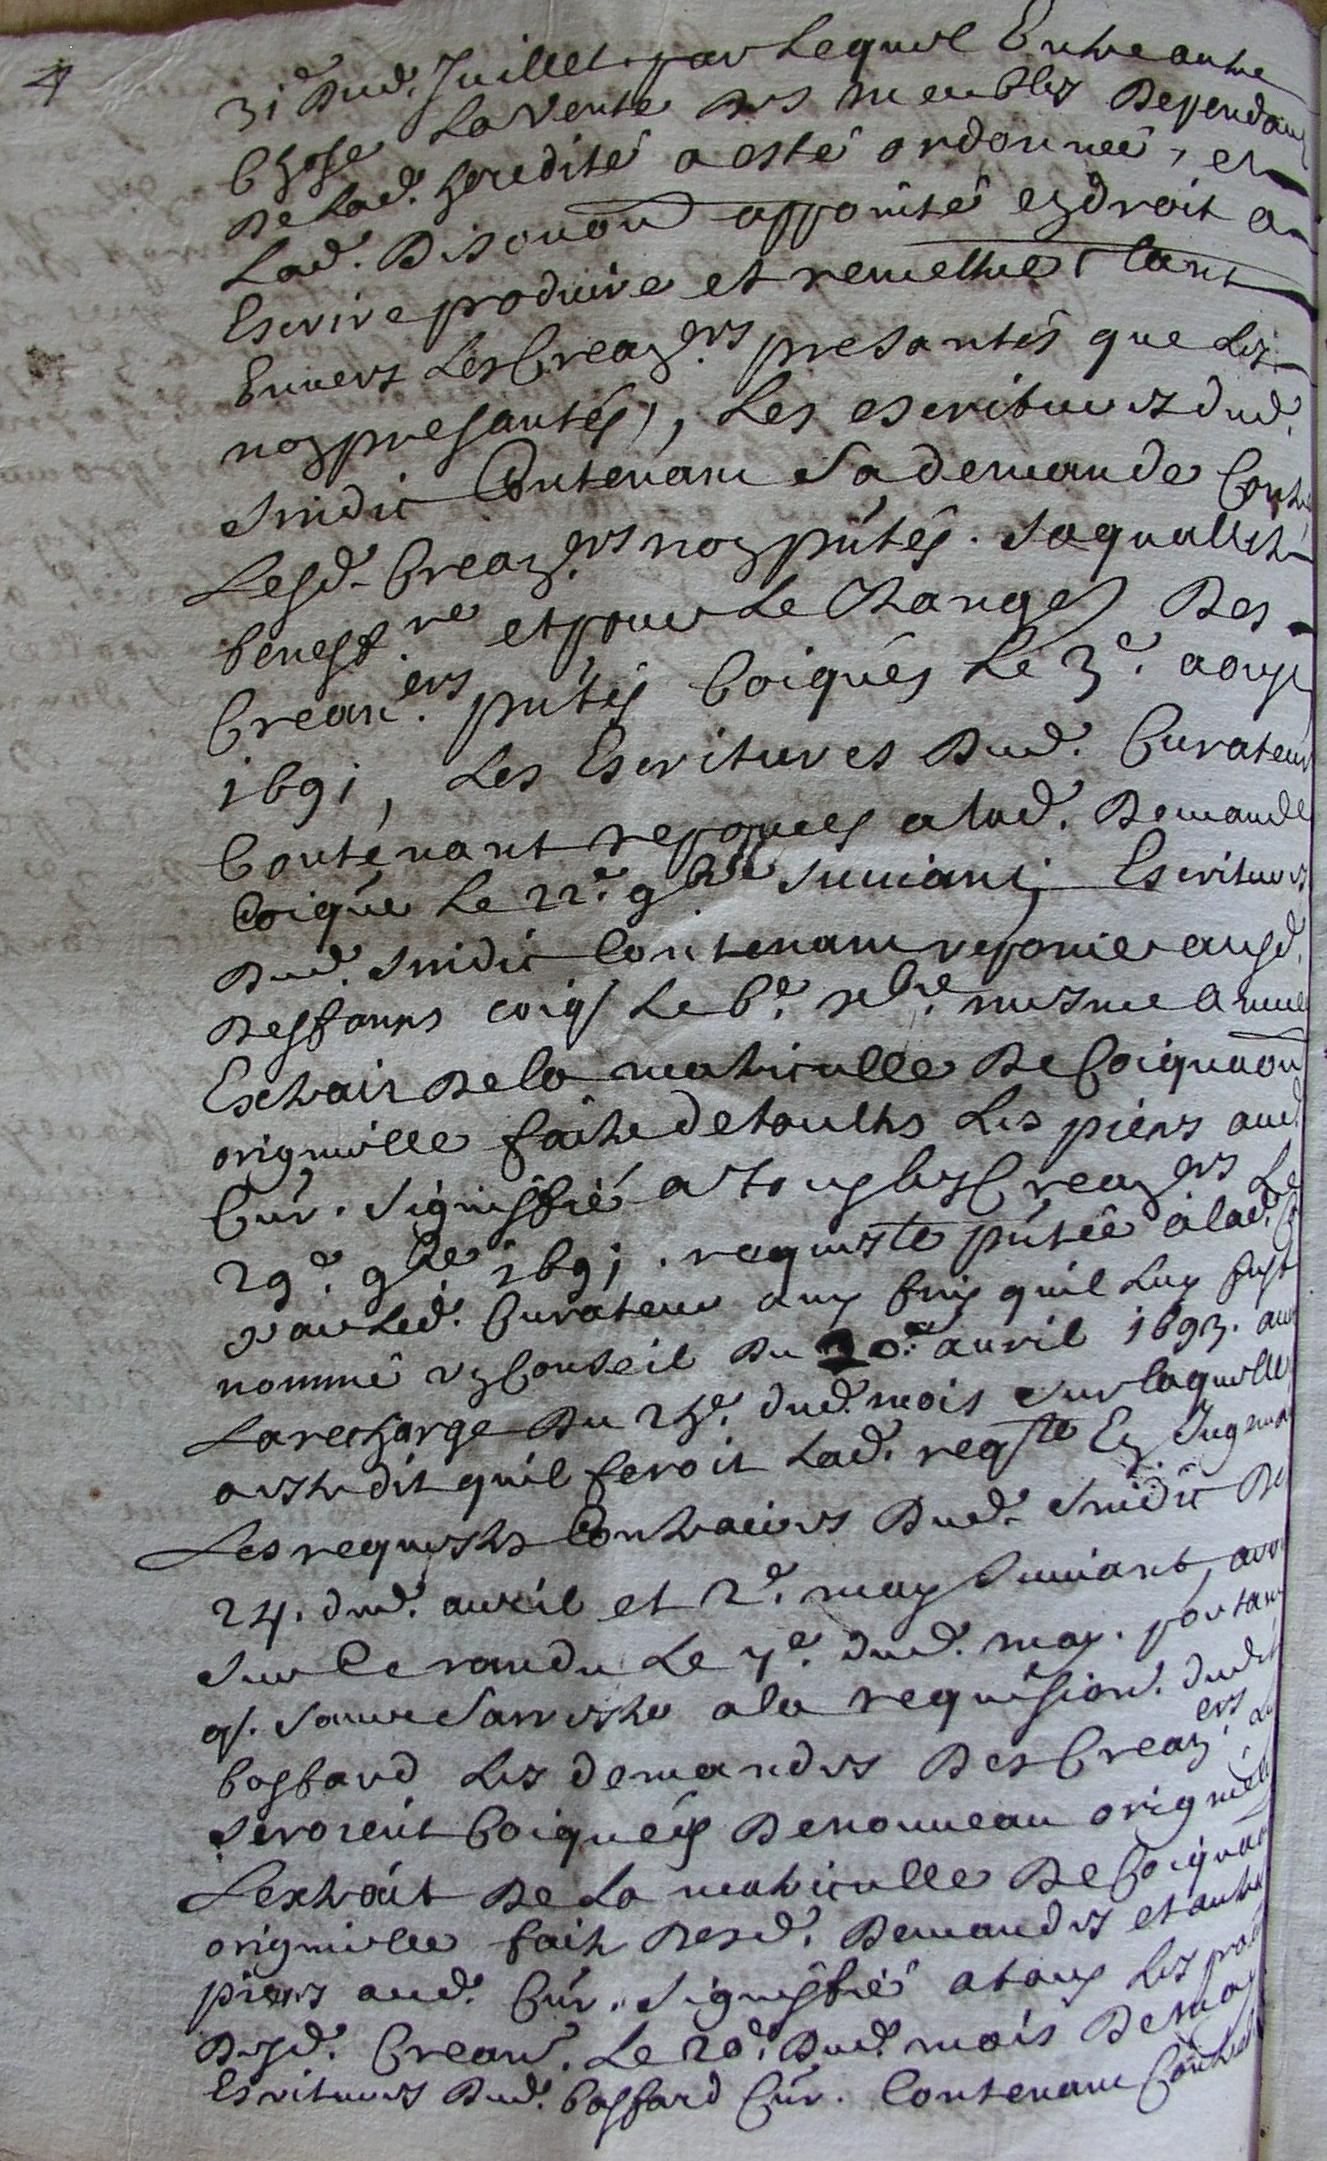 4
31e dud. Juillet par lequel Entre autre
Chose La Vente des meubles dependans
de lad. heredité a esté ordonnée, et
Lad. dision appointé en droit a
Escrire produire et remettre tant
Envers Les Crean.ers presantés que les
non presantés, Les escritures dud.
sindic Contenant Sa demande Contre
Lesd. Crean.ers non pntés.
benef.re et pour Le Rangé des
Crean.ers pntés Coiqués le 3e. aoust
1691, Les Escritures dud. Curateur
Contenant reponces a lad. demande
Coiqué le 22e. 9bre suivant Escritures
dud. sindic Contenant reponce ausd.
deffances coiq Le 6e. xbre mesme année
Extrait de la matriculle de Coiquaon
originelle faite de toultes Les pieces aud.
Cur. signiffié a tous les Crean.ers Le
29e. 9bre 1691. requeste pntée a lad.
par led. Curateur aux fins quil Luy fust
nommé un Conseil du 20e. avril 1693. avec
La recharge du dud. mois sur laquelle
este dit quil seroit lad. reqste En Jugema
Les requestes Contraires dud. sindic des
24. dud. avril et 2e. may suivant,
sur Ce randu Le 7e. dud. may. portant
q. sans sarreste a la requision. dud.
Boffard Les demandes des Crean.ers
seroient Coiquées de nouveau
Lextrait de la matriculle de Coiquaon
originelle fait desd. demandes et autres
pieces aud. Cur. signiffié a tous Les
desd. Crean. Le 20e. dud. mois de may
Escritures dud. Boffard Cur. Contenant